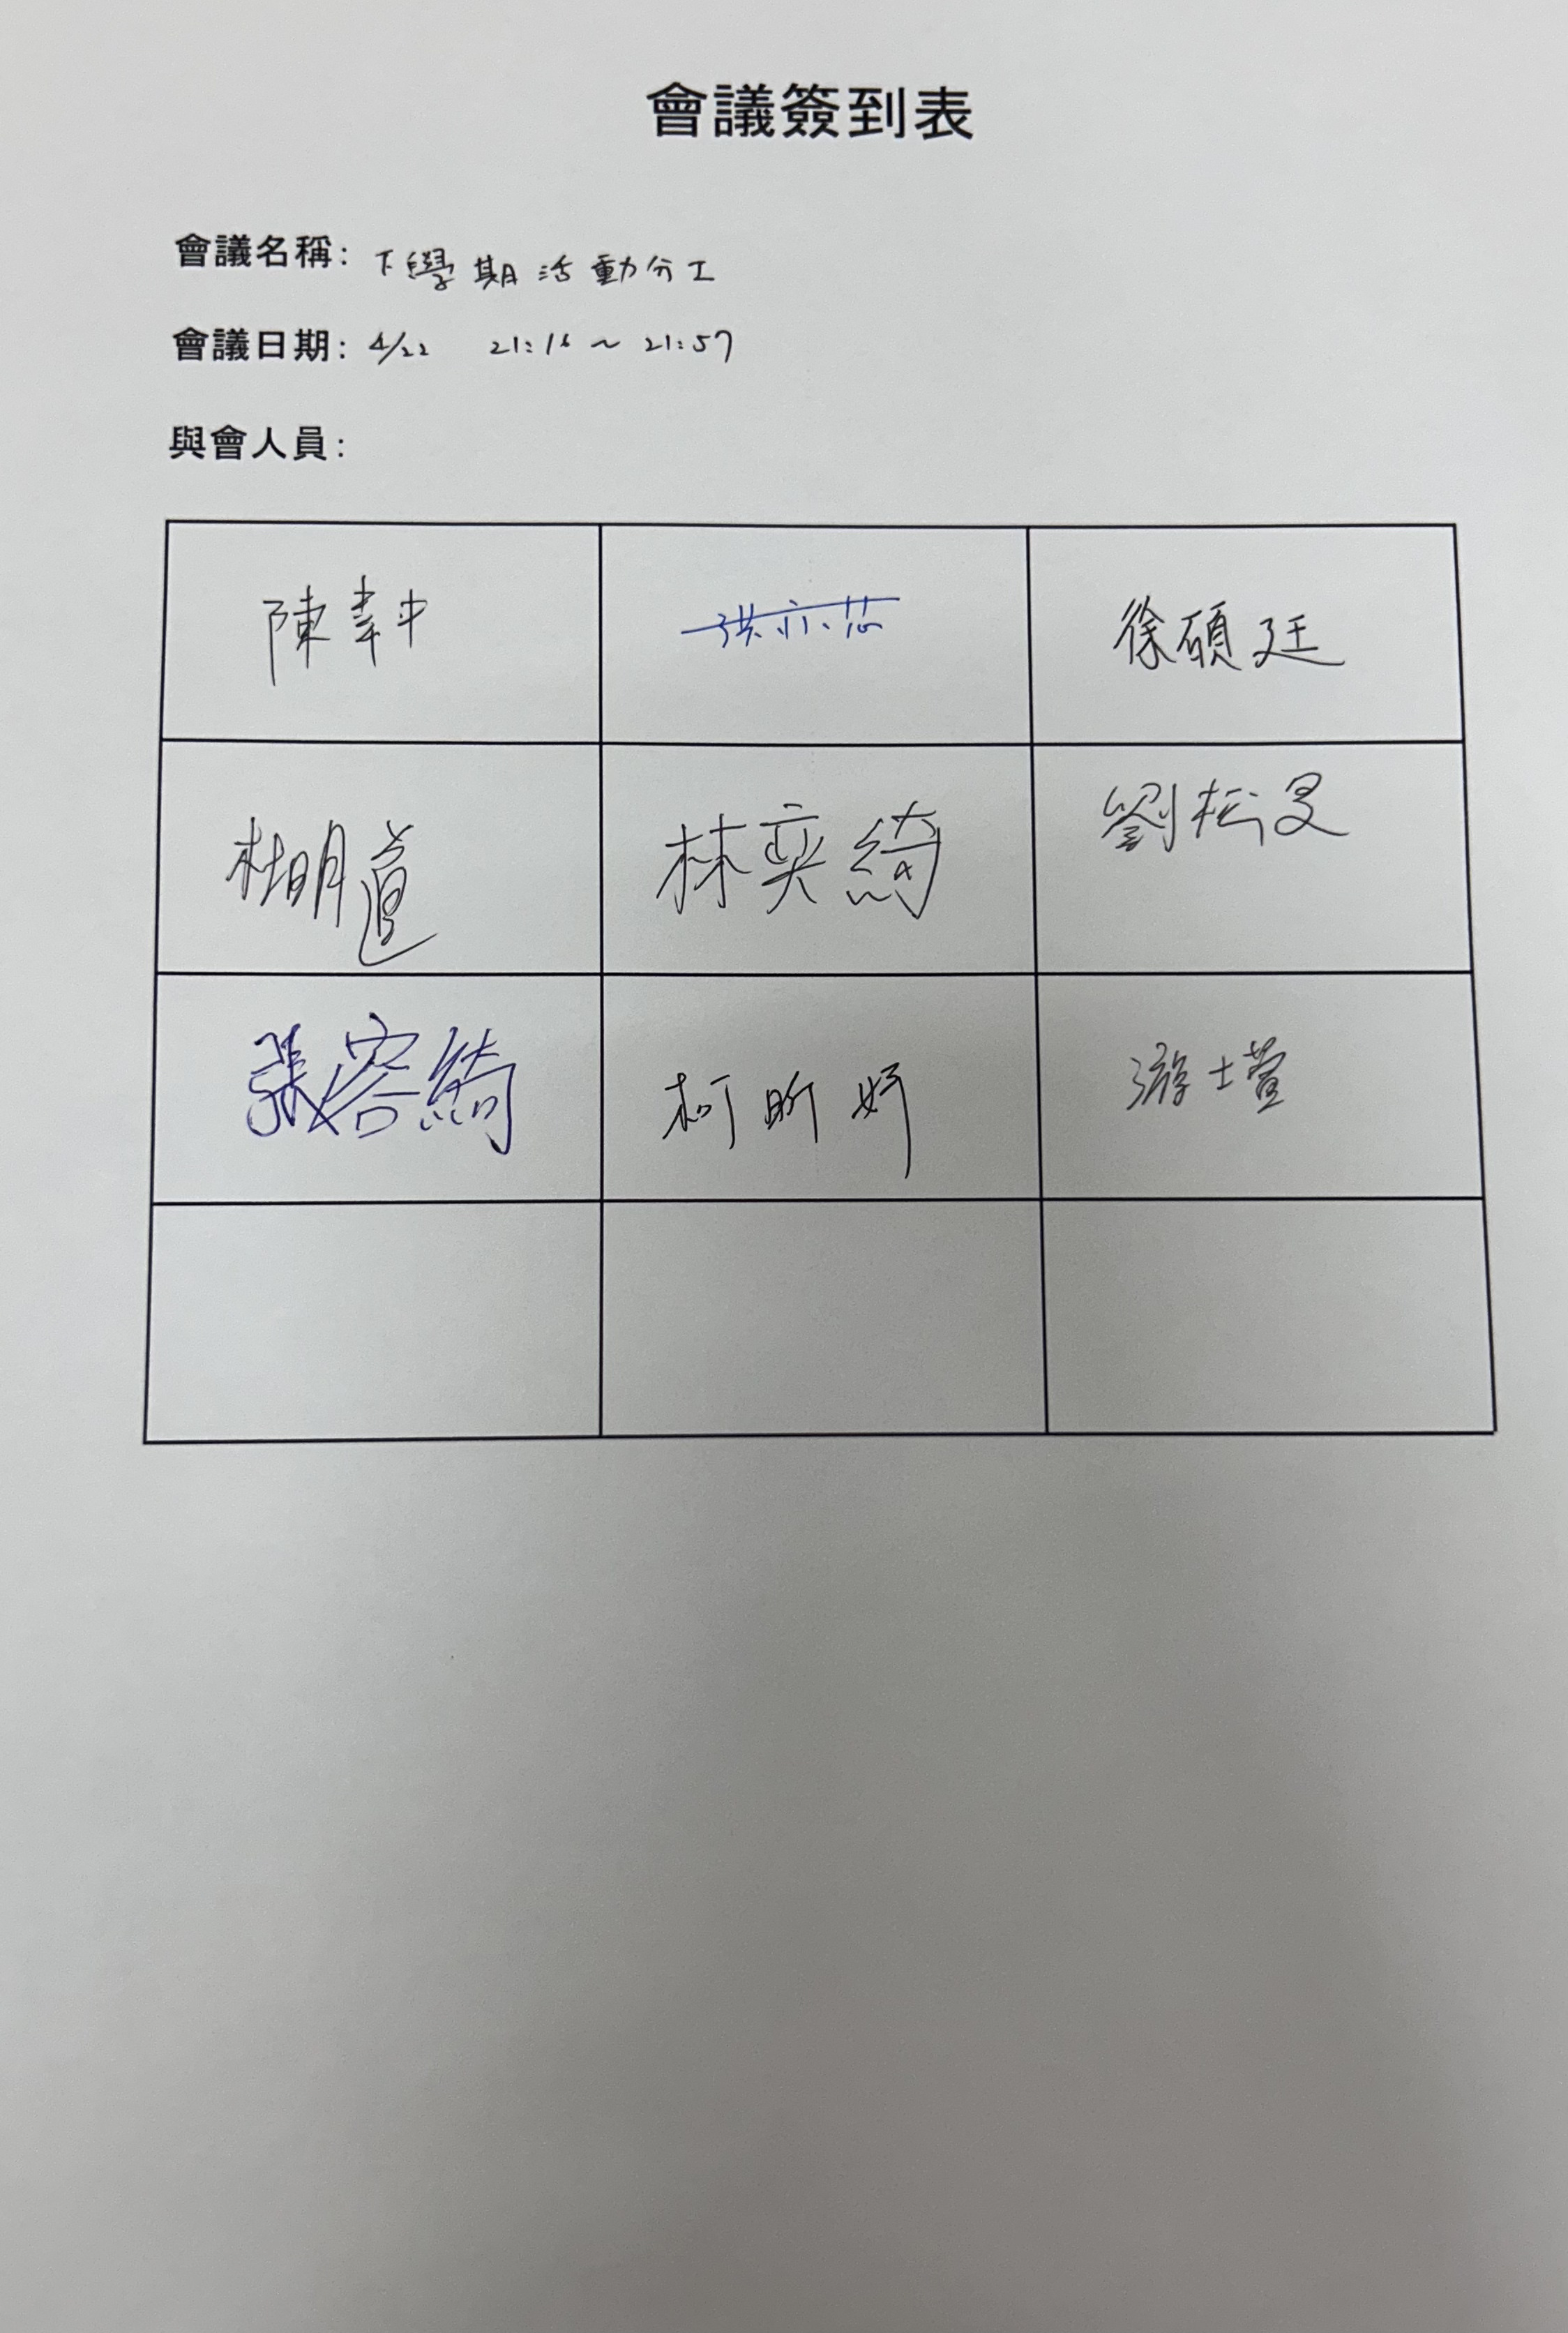 會議簽到表
會議名稱：下學期活動分工
會議日期：4/22 21:16～21:57
與會人員：
陳韋中 洪亦芯 徐碩廷
林奕綺 劉松旻
張容綺 柯昕妤 游士萱